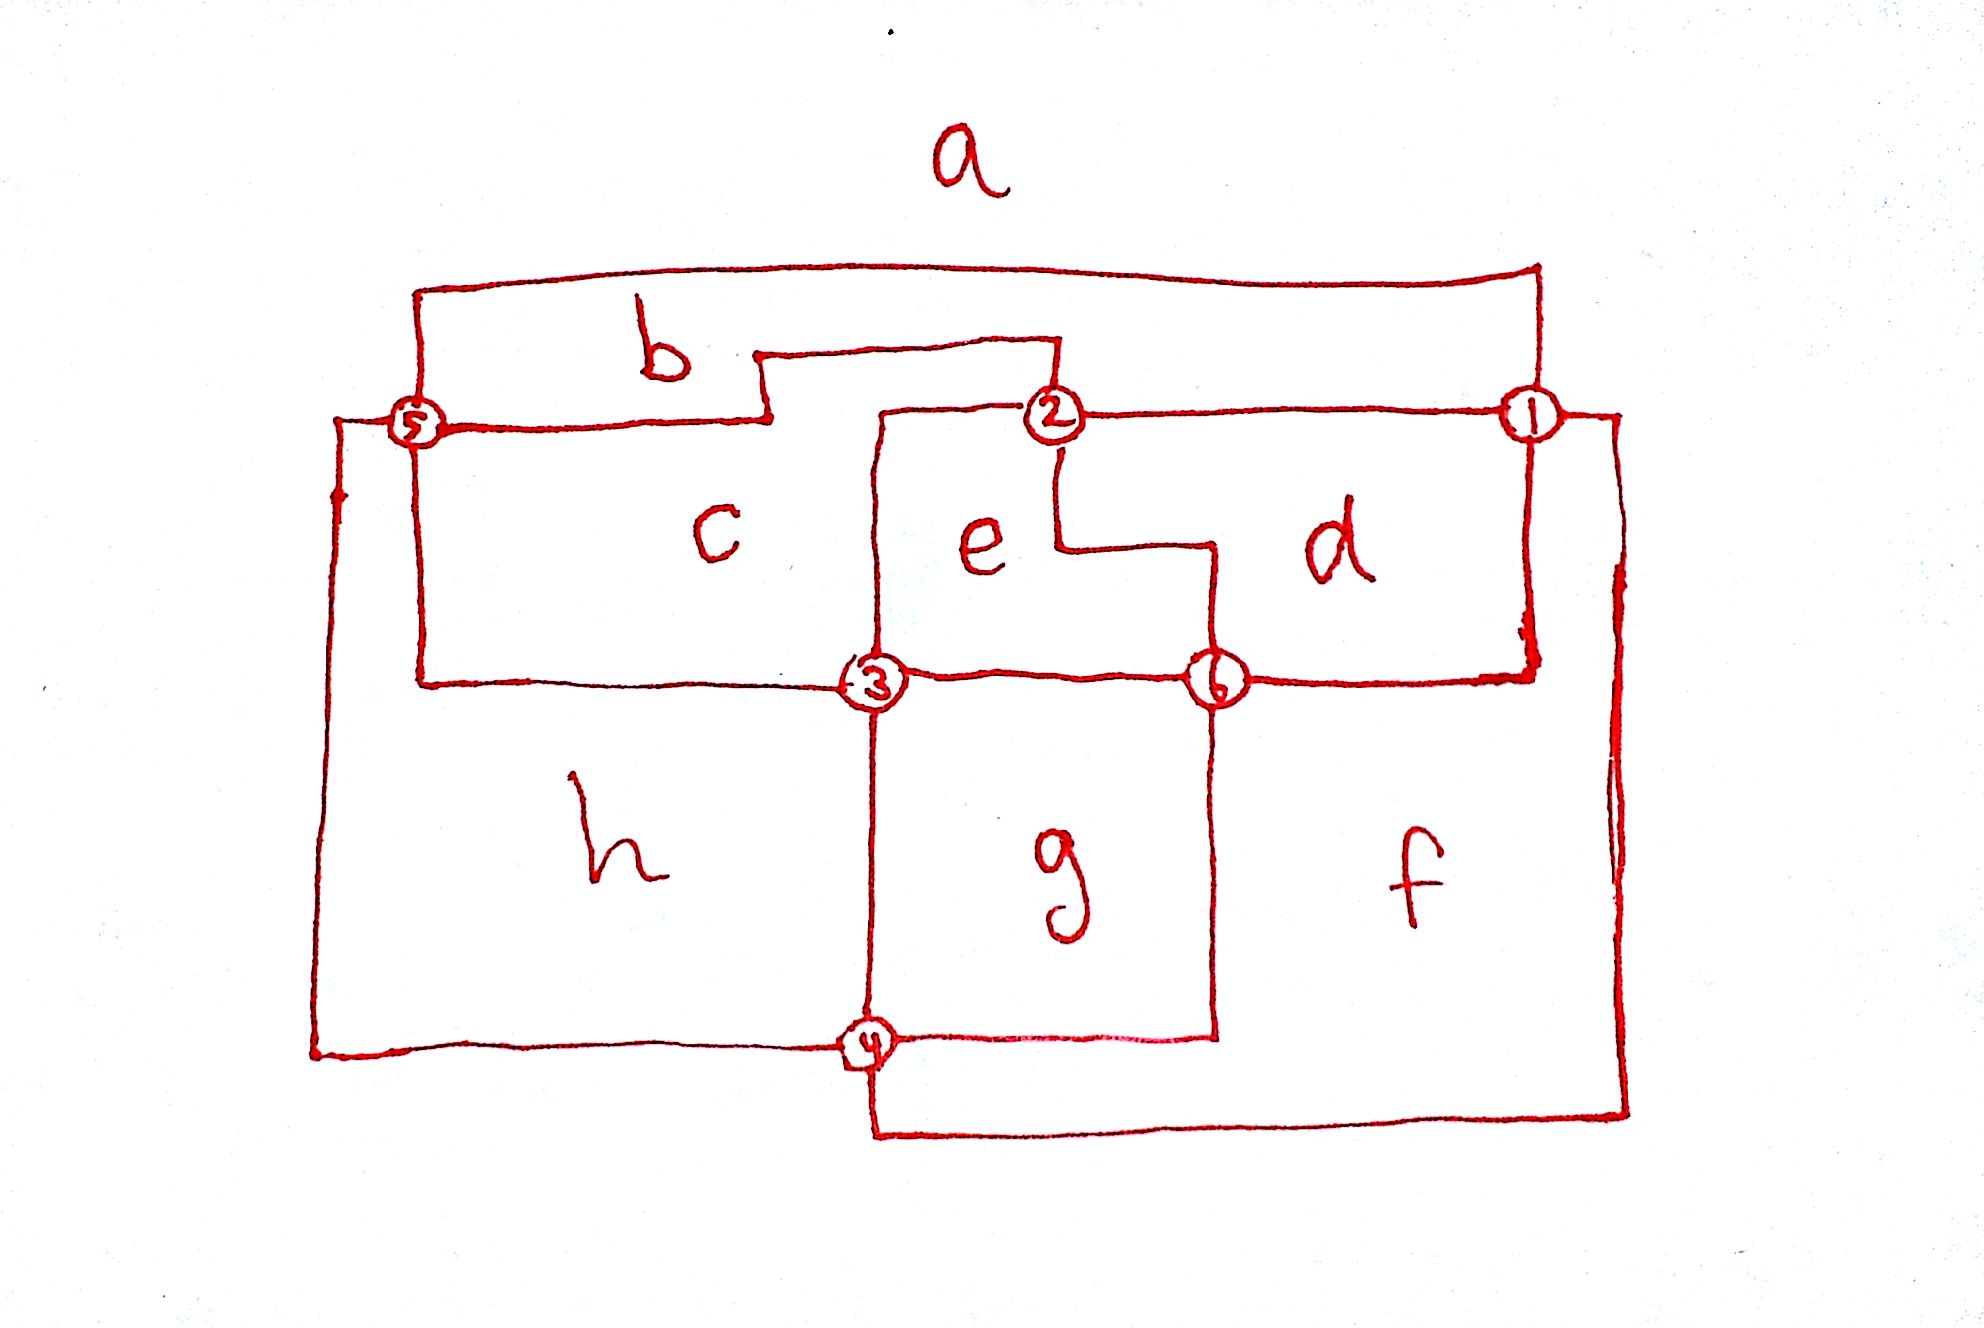 a
b
5 2 1
c e d
3 6
h g f
4